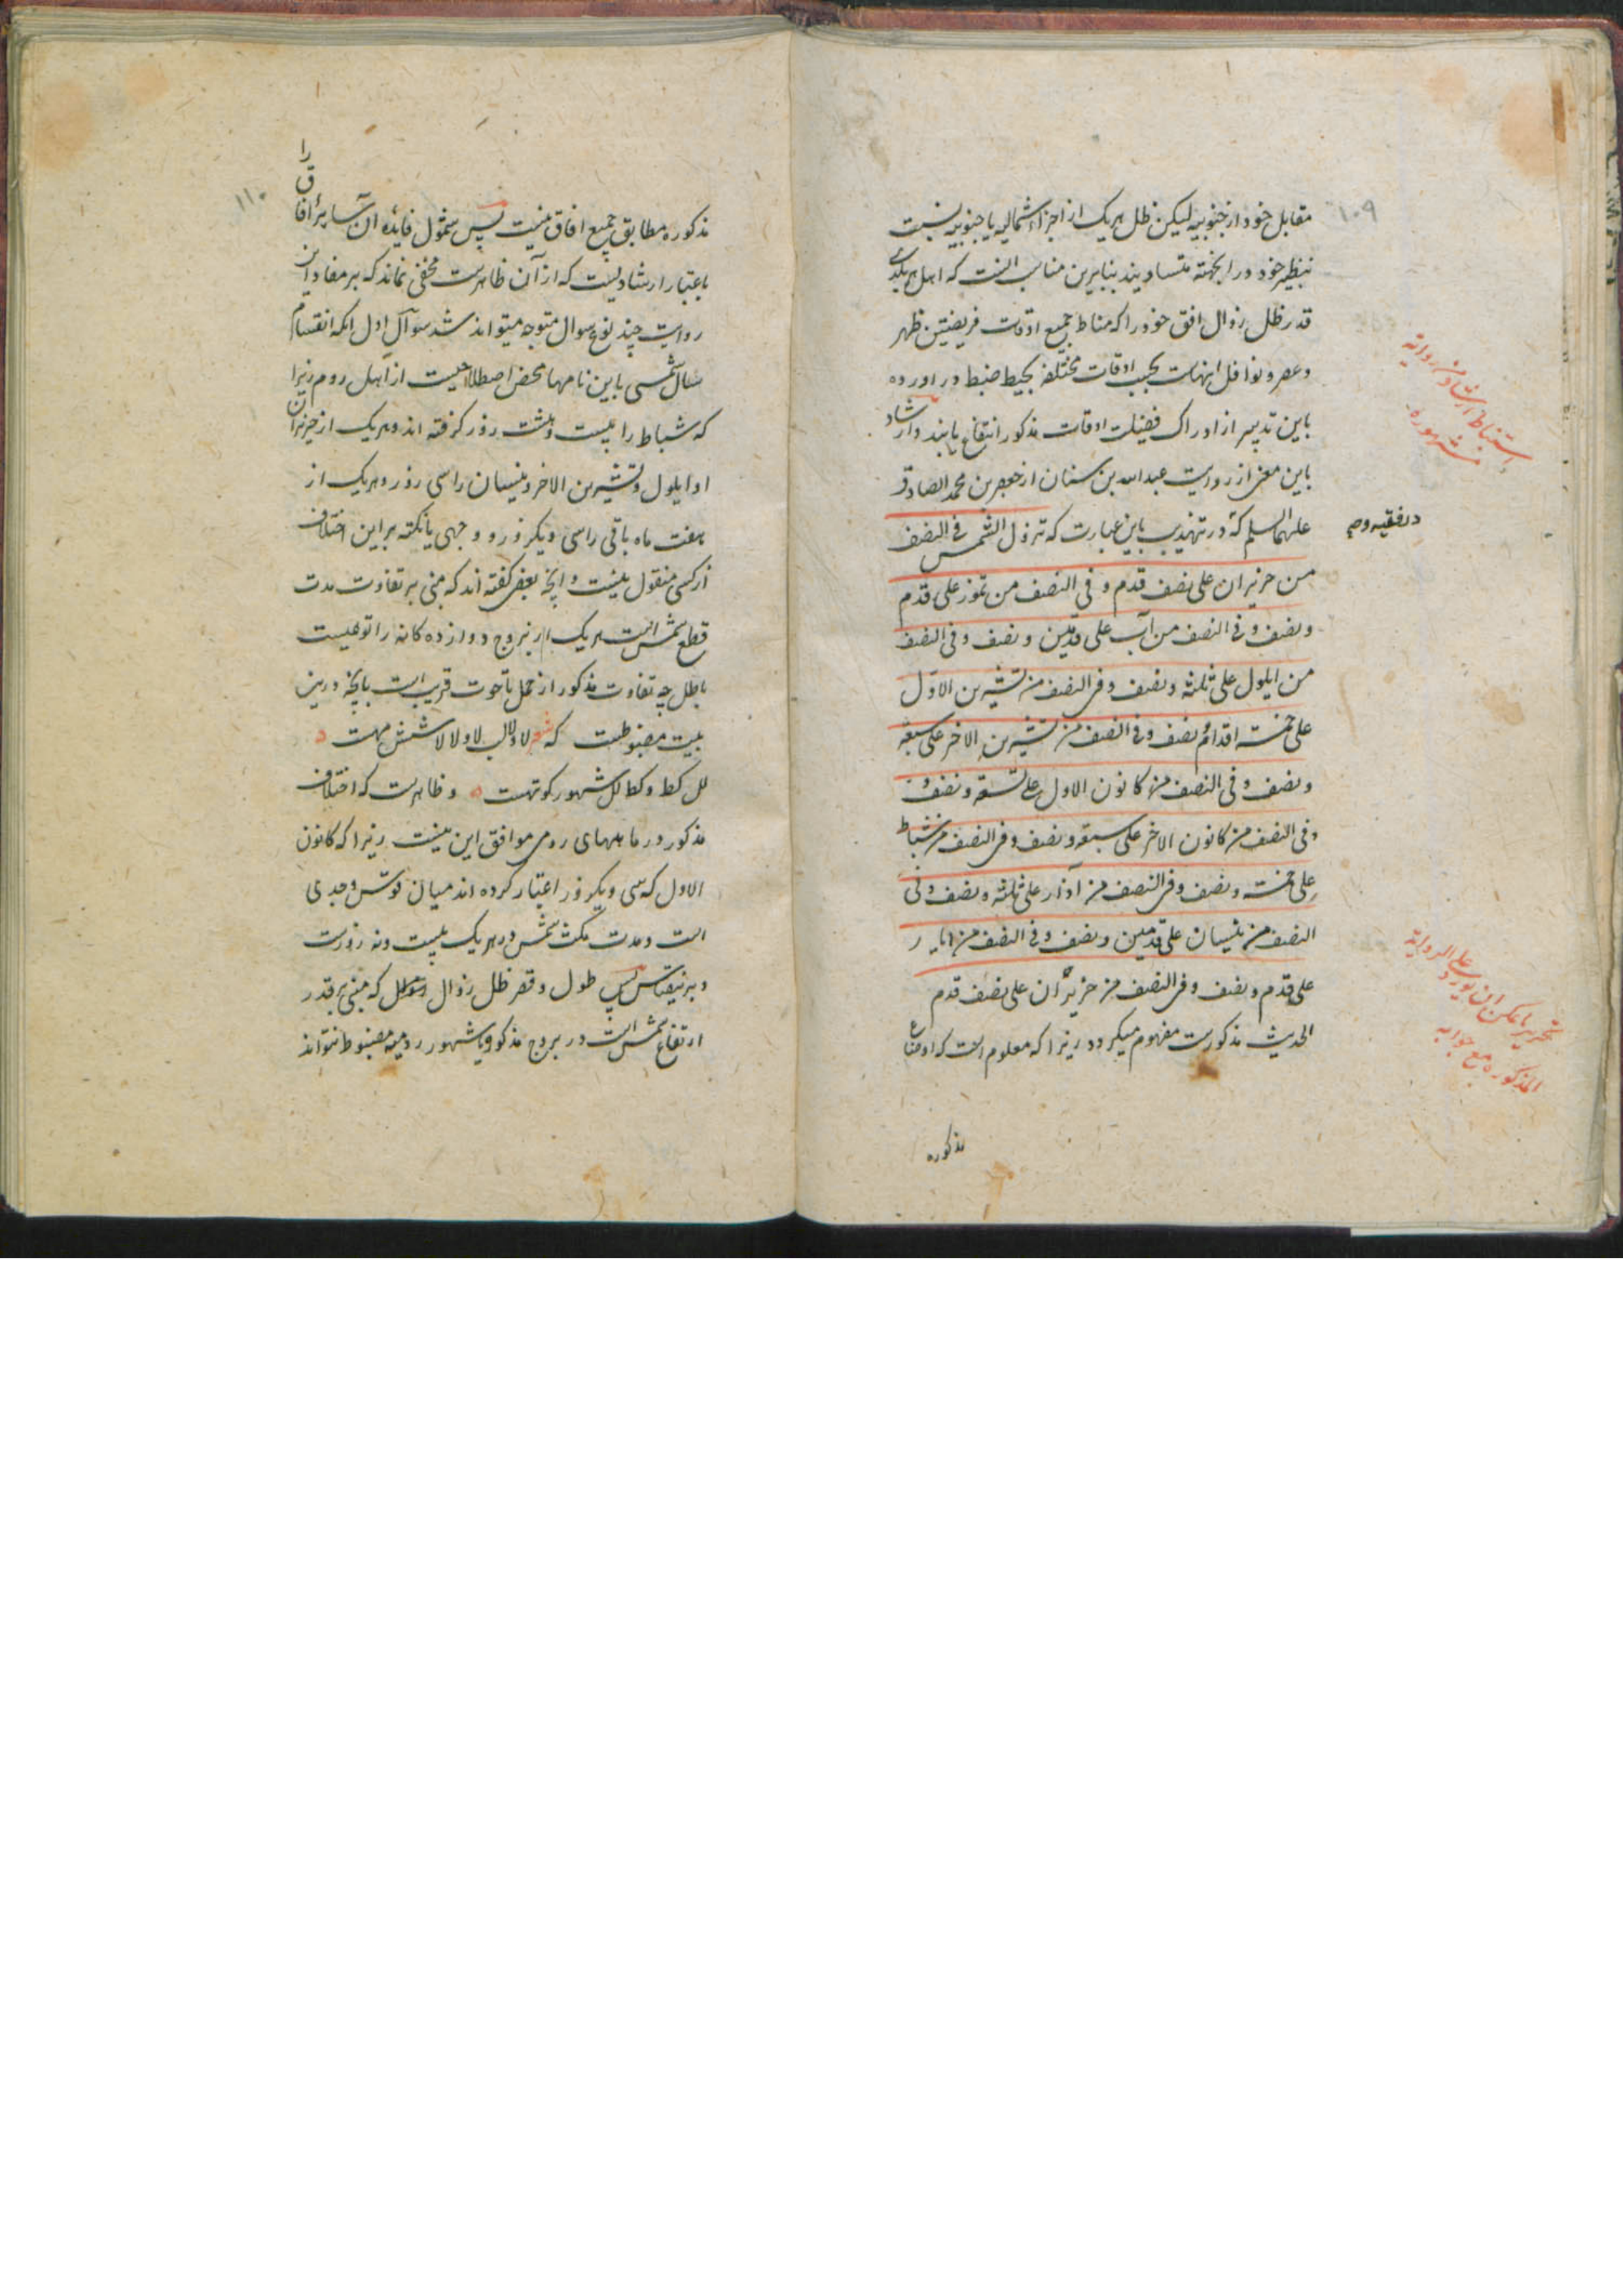 ۱۰۹
مقابل خود از جنوبیه لیکن ظل هریک از اجزاء شمالیه یا جنوبیه نسبت
بنظیر خود در ابجهته متساویند بنابرین مناسب انست که اهل هر بلدی
قدر ظل زوال افق خود را که مناط جمیع اوقات فریضتین ظهر
و عصر و نوافل اینهاست بحسب اوقات مختلفه بحیطه ضبط در اورده
باین تدبیر از ادراک فضیلت اوقات مذکور انتفاع یابند و ارشاد
باین معنی از روایت عبدالله بن سنان از جعفر بن محمد الصادق
علیهما السلم که در تهذیب باین عبارت که تزول الشمس فی النصف
من حزیران علی نصف قدم و فی النصف من تموز علی قدم
و نصف و فی النصف من آب علی قدمین و نصف و فی النصف
من ایلول علی ثلثه و نصف و فی النصف من تشرین الاول
علی خمسة اقدام و نصف و فی النصف من تشرین الاخر علی سبعة
و نصف و فی النصف من کانون الاول علی تسعة و نصف
و فی النصف من کانون الاخر علی سبعة و نصف و فی النصف من شباط
علی خمسة و نصف و فی النصف من آذار علی ثلثه و نصف و فی
النصف من نیسان علی قدمین و نصف و فی النصف من ایار
علی قدم و نصف و فی النصف من حزیران علی نصف قدم
الحدیث مذکورست مفهوم میکردد زیرا که معلوم است که اوضاع
مذکوره
استنباط ارشاد من روایة
مشهوره
در فقیه و
تحریر ما یمکن ان یورد علی الروایة
المذکوره مع جوابه
۱۱۰
مذکوره مطابق جمیع افاق نیست پس شمول فایده ان سایر افاق را
باعتبار ارشادیست که از آن ظاهرست مخفی نماند که بر مفاد این
روایت چند نوع سوال متوجه میتواند شد سوآل اول انکه انقسام
سال شمسی باین نامها محض اصطلاحیست از اهل روم زیرا
که شباط را بیست و هشت روز کرفته اند و هریک از حزیران
و ایلول و تشرین الاخر و نیسان را سی روز و هریک از
هفت ماه باقی را سی و یکروز و وجهی یا نکته بر این اختلاف
از کسی منقول نیست و انچه بعضی کفته اند که مبنی بر تفاوت مدت
قطع شمس است هریک از بروج دوازده کانه را توهیست
باطل چه تفاوت مذکور از حمل تا حوت قریب است بانچه درین
بیت مضبوطست که شعر لا و لا لب لا و لا لا شش مهست
لل کط و کط لل شهور کوتهست و ظاهرست که اختلاف
مذکور در ماههای رومی موافق این نیست زیرا که کانون
الاول که سی و یکروز اعتبار کرده اند میان قوس و جدی
است و مدت مکث شمس در هریک بیست و نه روزست
و برینقیاس پس طول و قصر ظل زوال که مبنی بر قدر
ارتفاع شمس است در بروج مذکور بشهور رومیه مضبوط نتواند